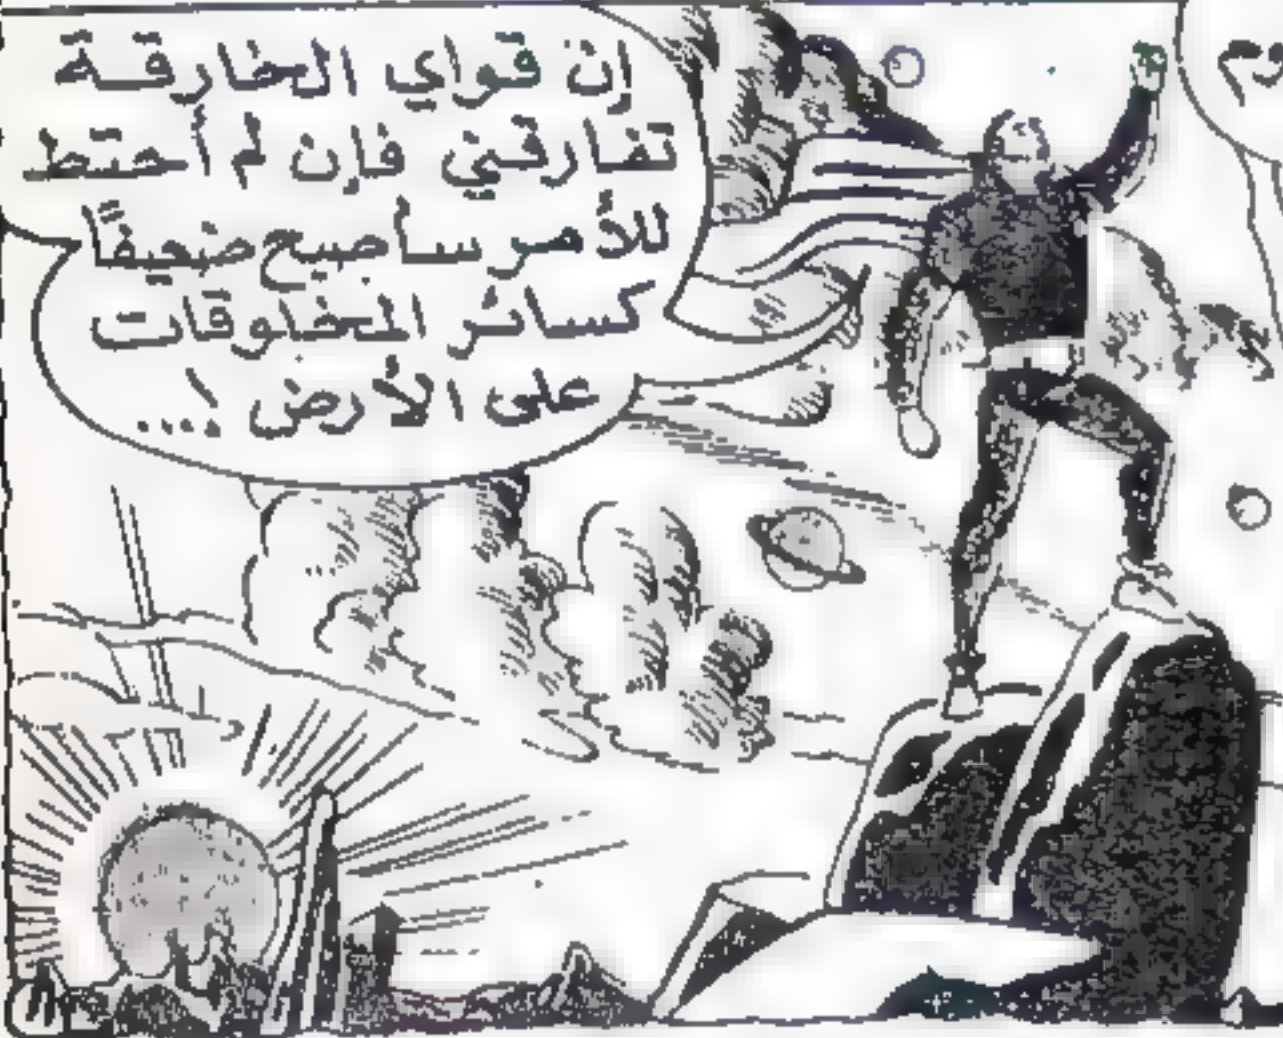 إن قواي الخارقة
تفارقني فإن لم أحتط
للأمر سأصبح ضعيفًا
كسائر المخلوقات
على الأرض !...